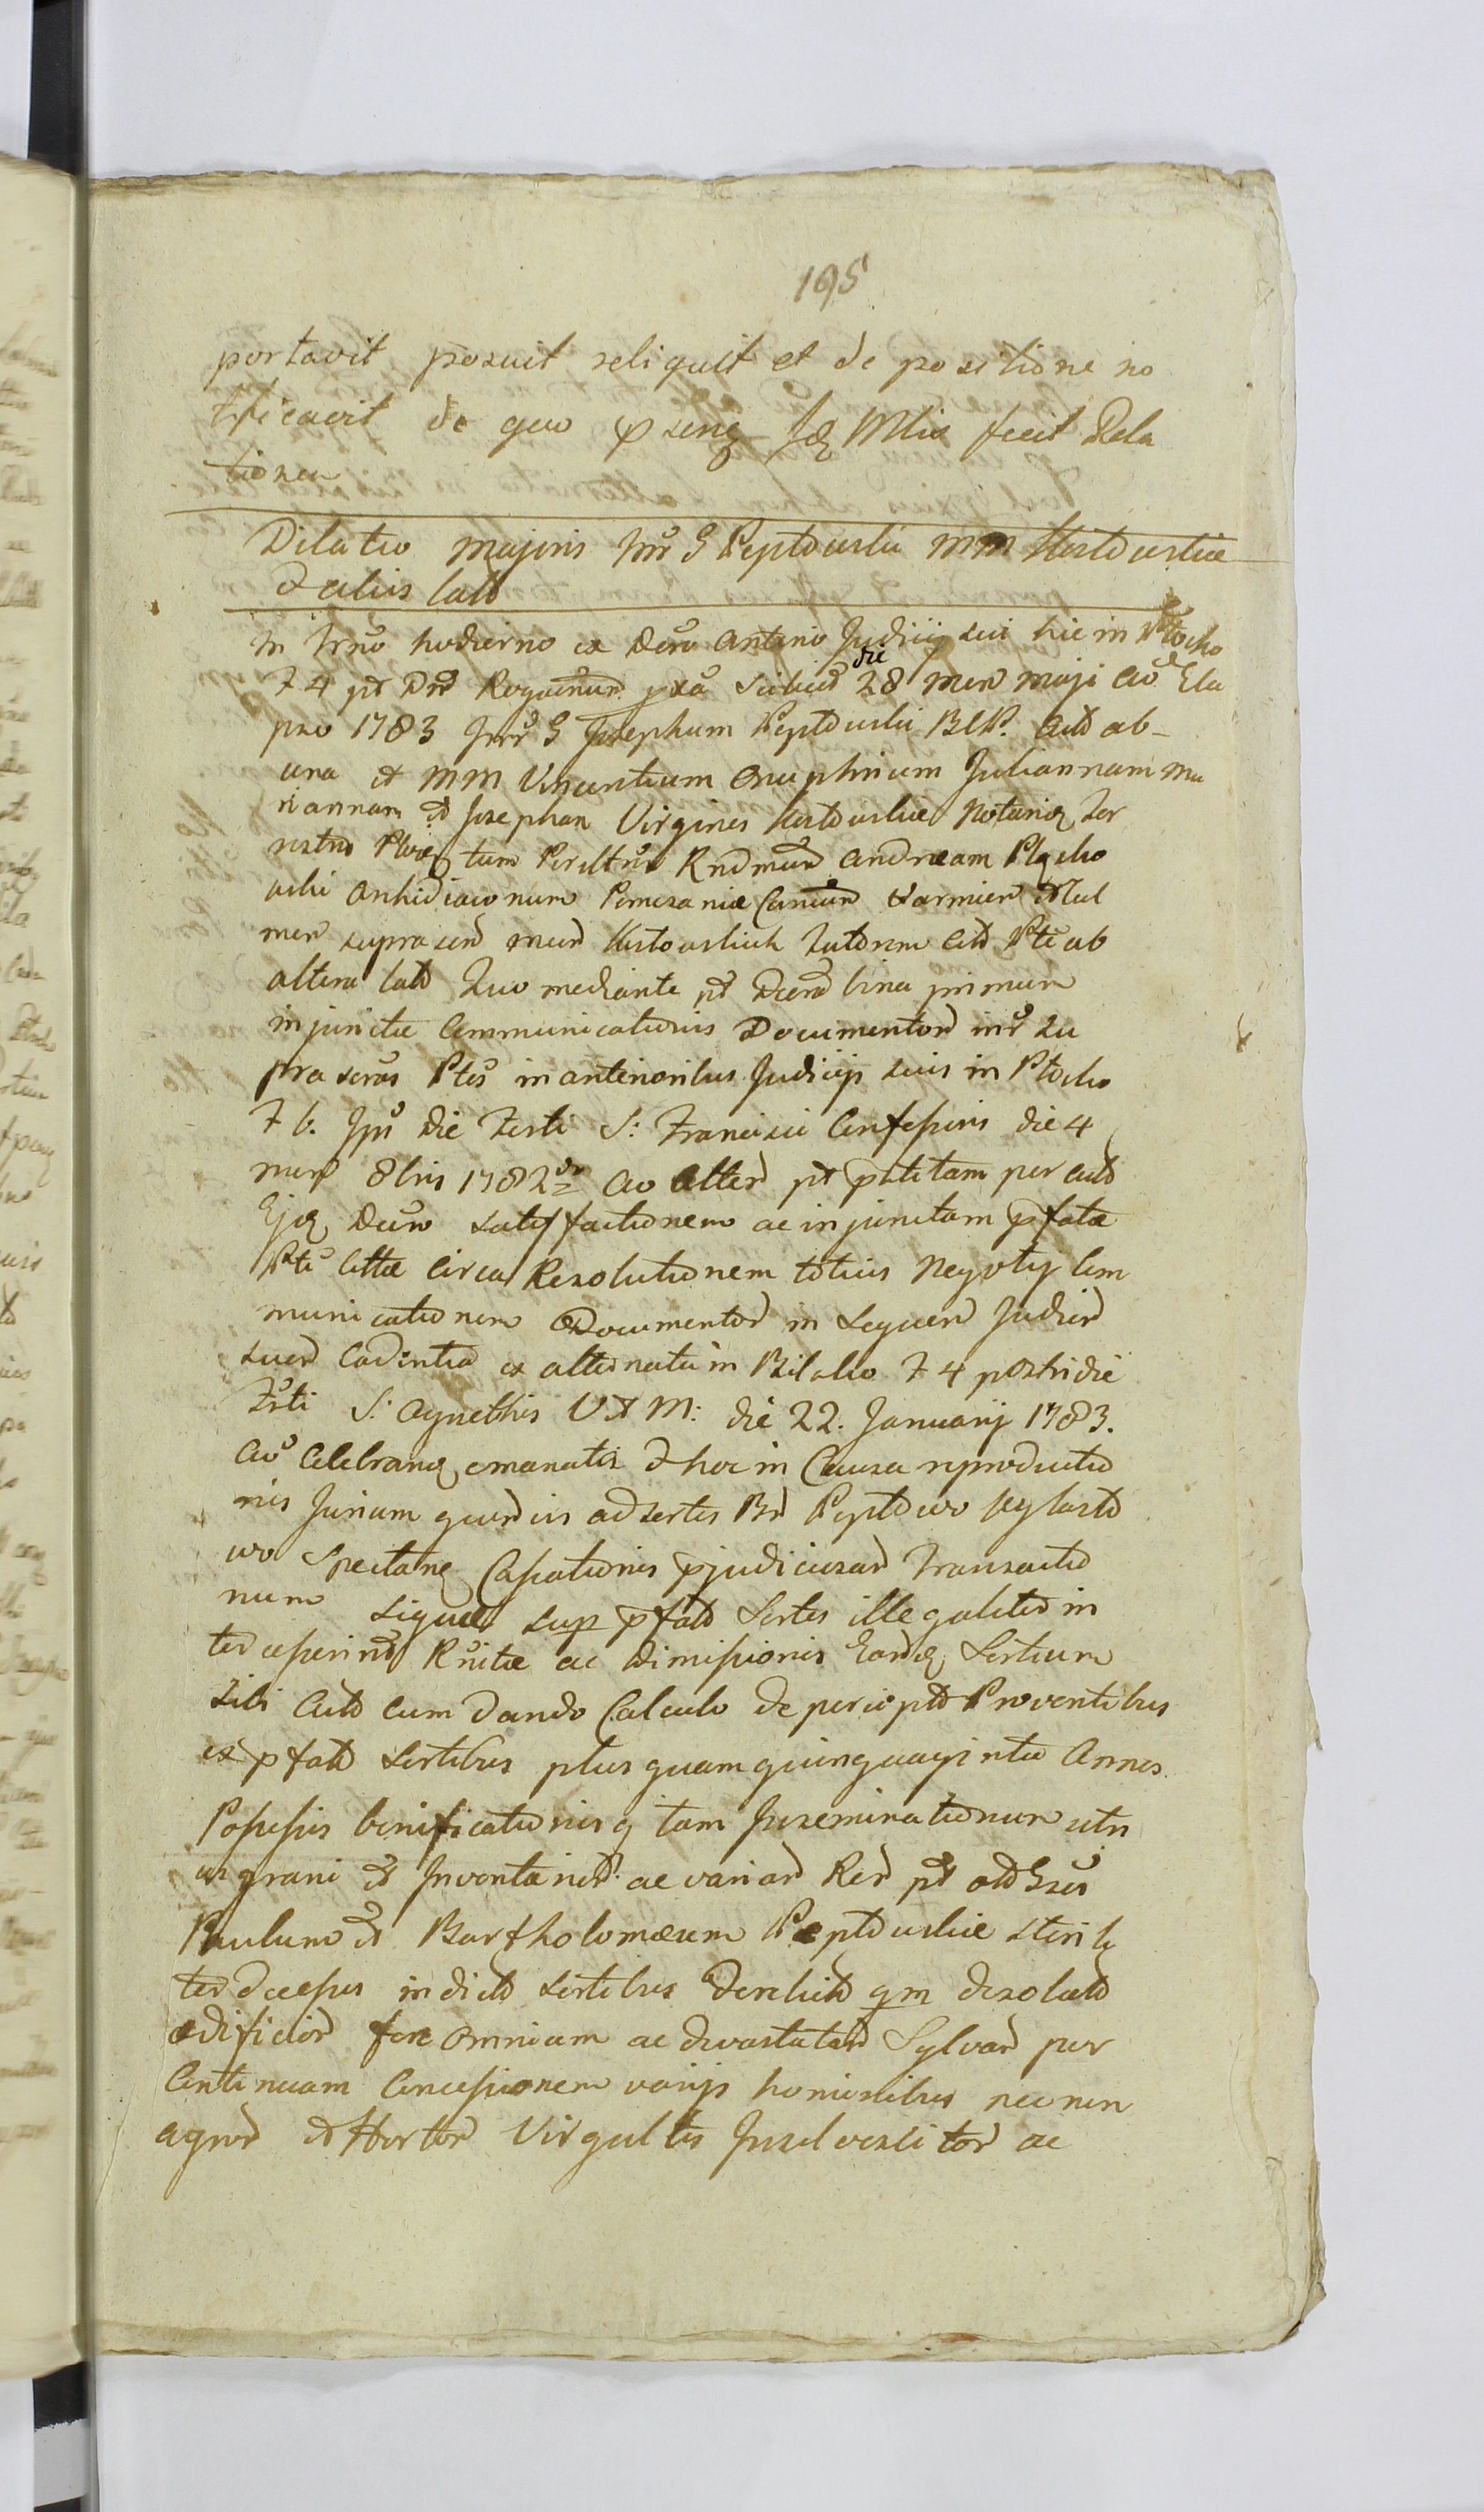 195
portavit posuit reliquit et de positione no
tificavit de quo p Mlis fecit Rela
tionem
Dilatio majoris Inr G Peptowski MM Kostowskie
et aliis latt
In Trno hodierno ex Decro anterio Judicij sui hic in Plocko
F 4 pt Dnr Rogaonum die 28 Men Maji Ao Ela
pso 1783 Inr G Josephum Peptowski BCP. Actt ab
una et MM Vincentium Onuphrium Juliannam Ma
riannam et Josepham Virgines Kostowskie Notarij Ter
restris tum Perlltrm Rndmum Andream
Archidiaconum Pomesaniæ Cancum Varmien
men suprascr Kostowskich Tutorem Citt Pte ab
altera latt Quo mediante pt Dcem bina primum
injunctæ Communicationis Documentor intr su
pra scras Ptes in anterioribus Judicijs suis in Plocko
F 6. Ipso die Festi S: Francisci Confessoris die 4
men 8bris 1782do Ao Alter pt pstitam per Actt
Ejq Decro satisfactionem ac injunctam pfatæ
Pti Cittæ Circa Resolutionem totius Negotij Com
municationem Documentor in Sequen Judicir
suer Cadentia ex alternata in Bielsko F 4 postridie
Fsti S: Agnethis V et M: die 22. Januarij 1783.
Ao Celebranq emanatis et hoc in Causa reproductio
nis Jurium quor vis ad sortes Br Peptowo
wo Spectanq Cassationis pjudiciosar Transactio
num siquæ sup pfatt Sortes illegaliter in
tercesserint Rnitæ ac Dimissionis Earq Sortium
sibi Actt cum dando Calculo de perceptt Proventibus
ex pfatt Sortibus plus quam quinquaginta Annos
Possessis bonificationisq tam Inseminationum utri
usq grani et Inventarior ac variar Rer pt ott Gsos
Paulum et Bartholomæum Peptowskie sterili
ter decessos in dictt sortibus Derelictt qm desolatt
ædificior fere omnium ac devastatar Sylvar per
Continuam Concessionem varijs hominibus nec non
agror et Hortor Virgultis Insilvescitor ac